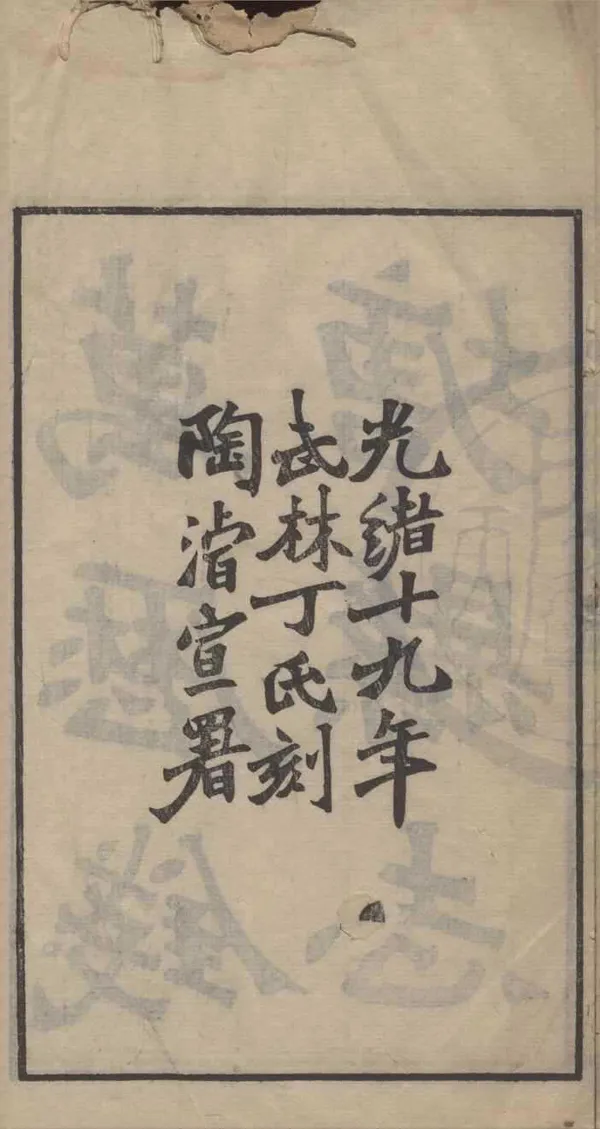 光緒十九年
武林丁氏刻
陶濬宣署